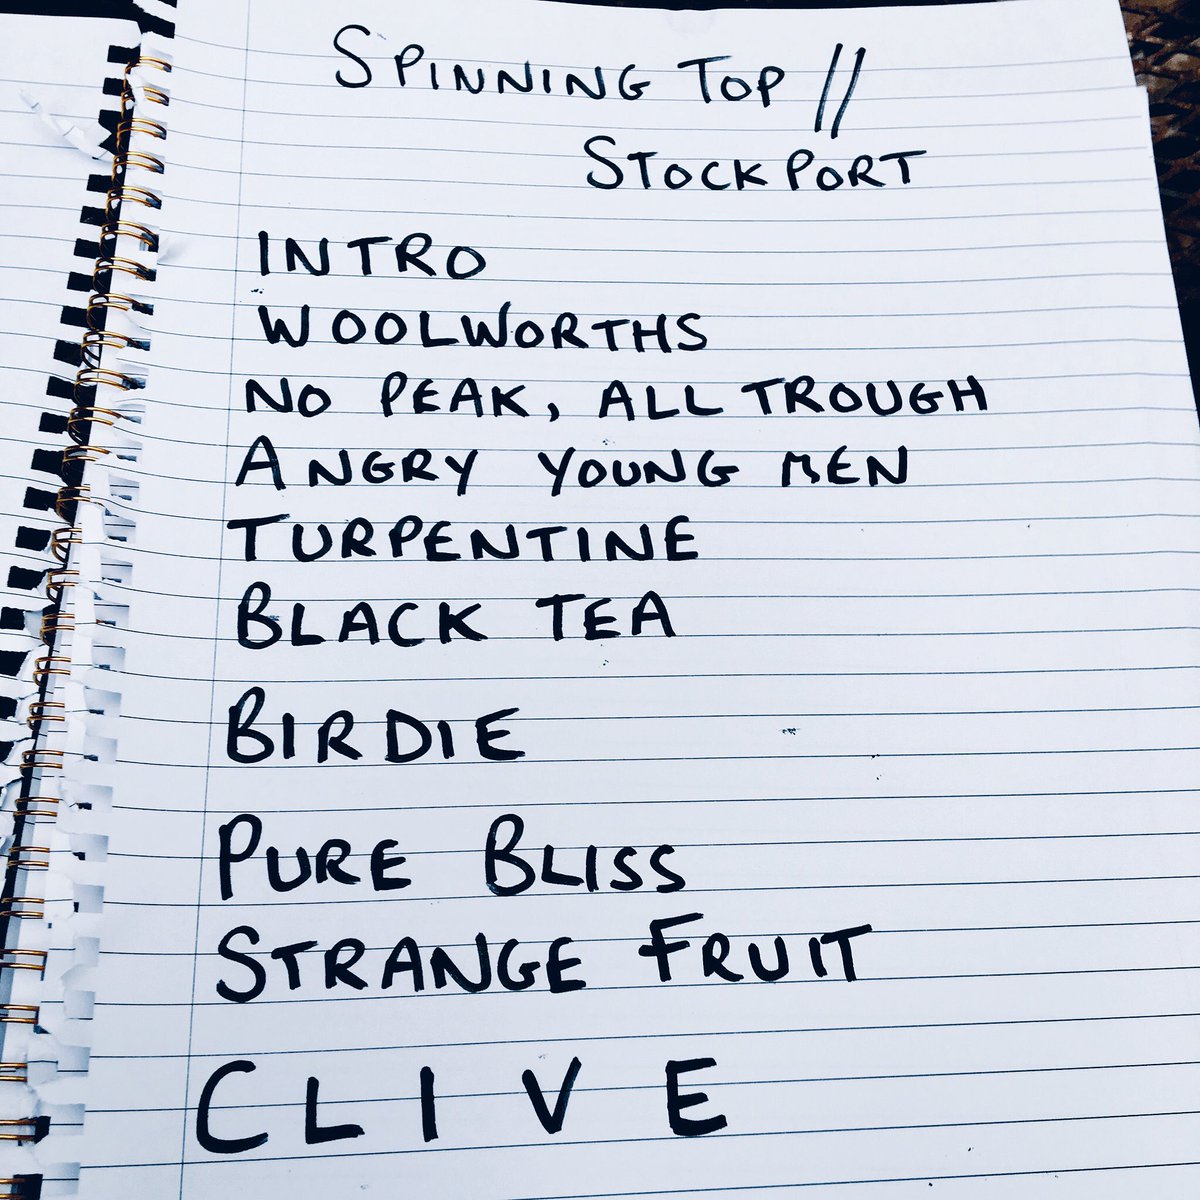 SPINNING TOP //
STOCKPORT
INTRO
WOOLWORTHS
NO PEAK, ALL TROUGH
ANGRY YOUNG MEN
TURPENTINE
BLACK TEA
BIRDIE
PURE BLISS
STRANGE FRUIT
CLIVE